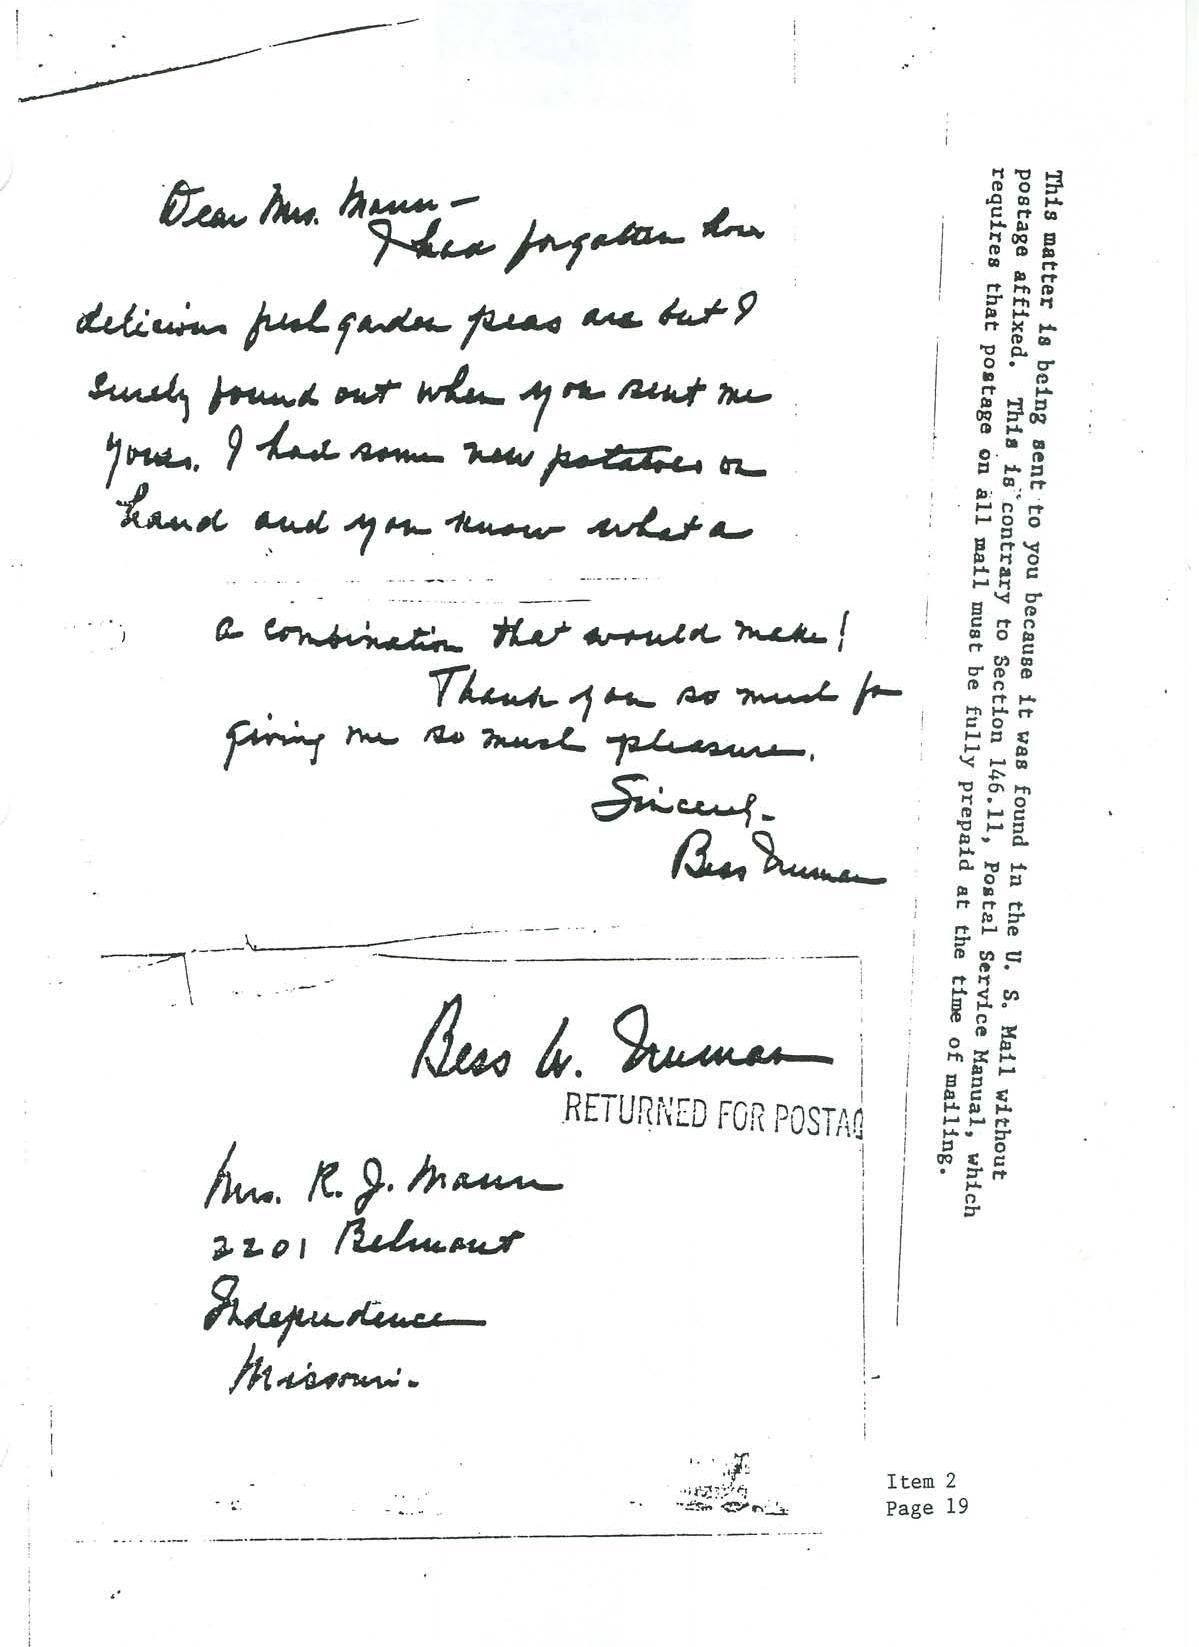 Dear Mrs. Mann —
I had forgotten how
delicious fresh garden peas are but I
surely found out when you sent me
yours. I had some new potatoes on
hand and you know what a
a combination that would make!
Thank you so much for
giving me so much pleasure.
Sincerely -
Bess Truman
Bess W. Truman
RETURNED FOR POSTAG
Mrs. R. J. Mann
2201 Belmont
Independence
Missouri.
This matter is being sent to you because it was found in the U. S. Mail without
postage affixed. This is contrary to Section 146.11, Postal Service Manual, which
requires that postage on all mail must be fully prepaid at the time of mailing.
Item 2
Page 19